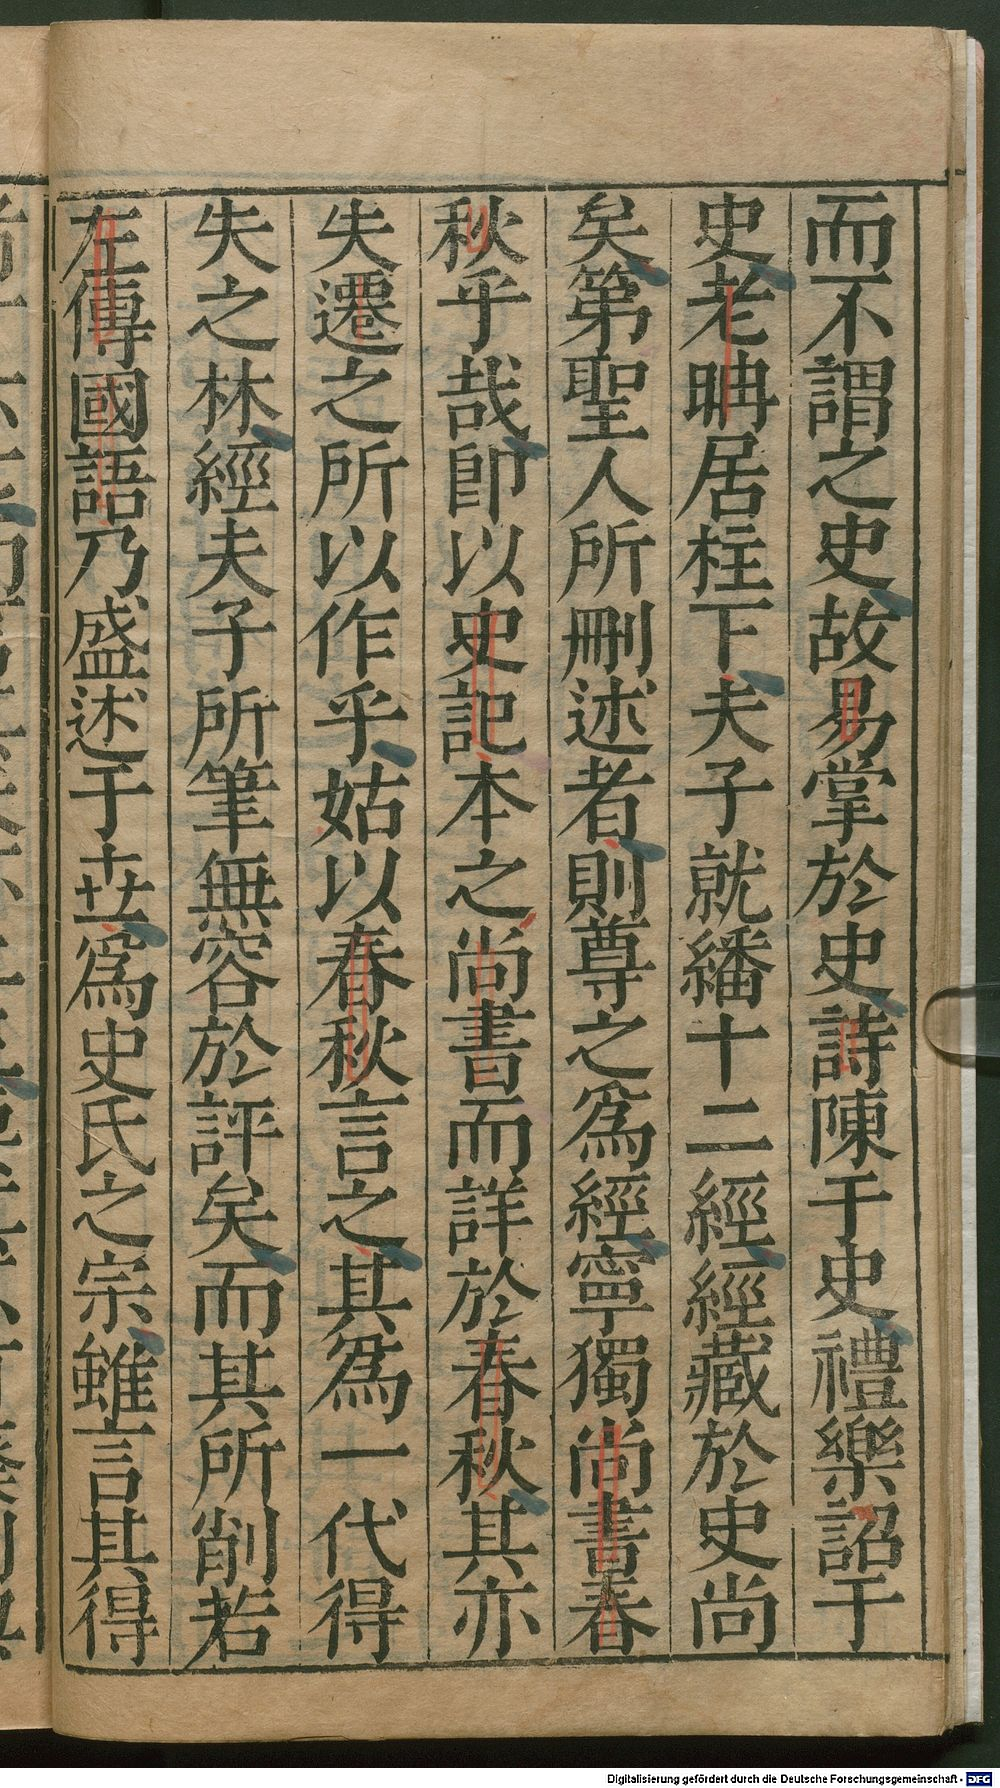 而不謂之史故易掌於史詩陳于史禮樂詔于
史老聃居柱下夫子就繙十二經經藏於史尚
矣第聖人所刪述者則尊之爲經寧獨尚書春
秋乎哉即以史記本之尚書而詳於春秋其亦
失遷之所以作乎姑以春秋言之其爲一代得
失之林經夫子所筆無容於評矣而其所削若
左傳國語乃盛述于世爲史氏之宗雖言其得
Digitalisierung gefördert durch die Deutsche Forschungsgemeinschaft - DFG